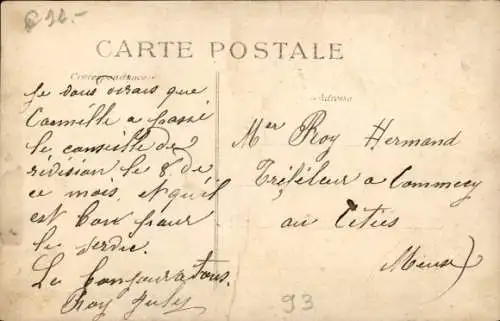 CARTE POSTALE
Correspondance
Adresse
Je vous dirais que
Camille a passé
le conseille de
révision le 8 de
ce mois et qu'il
est bon pour
le servic.
Le bonjour a tous.
Roy July
Mer Roy Hermand
Tréfileur a Commercy
au Cités
Meuse)
93